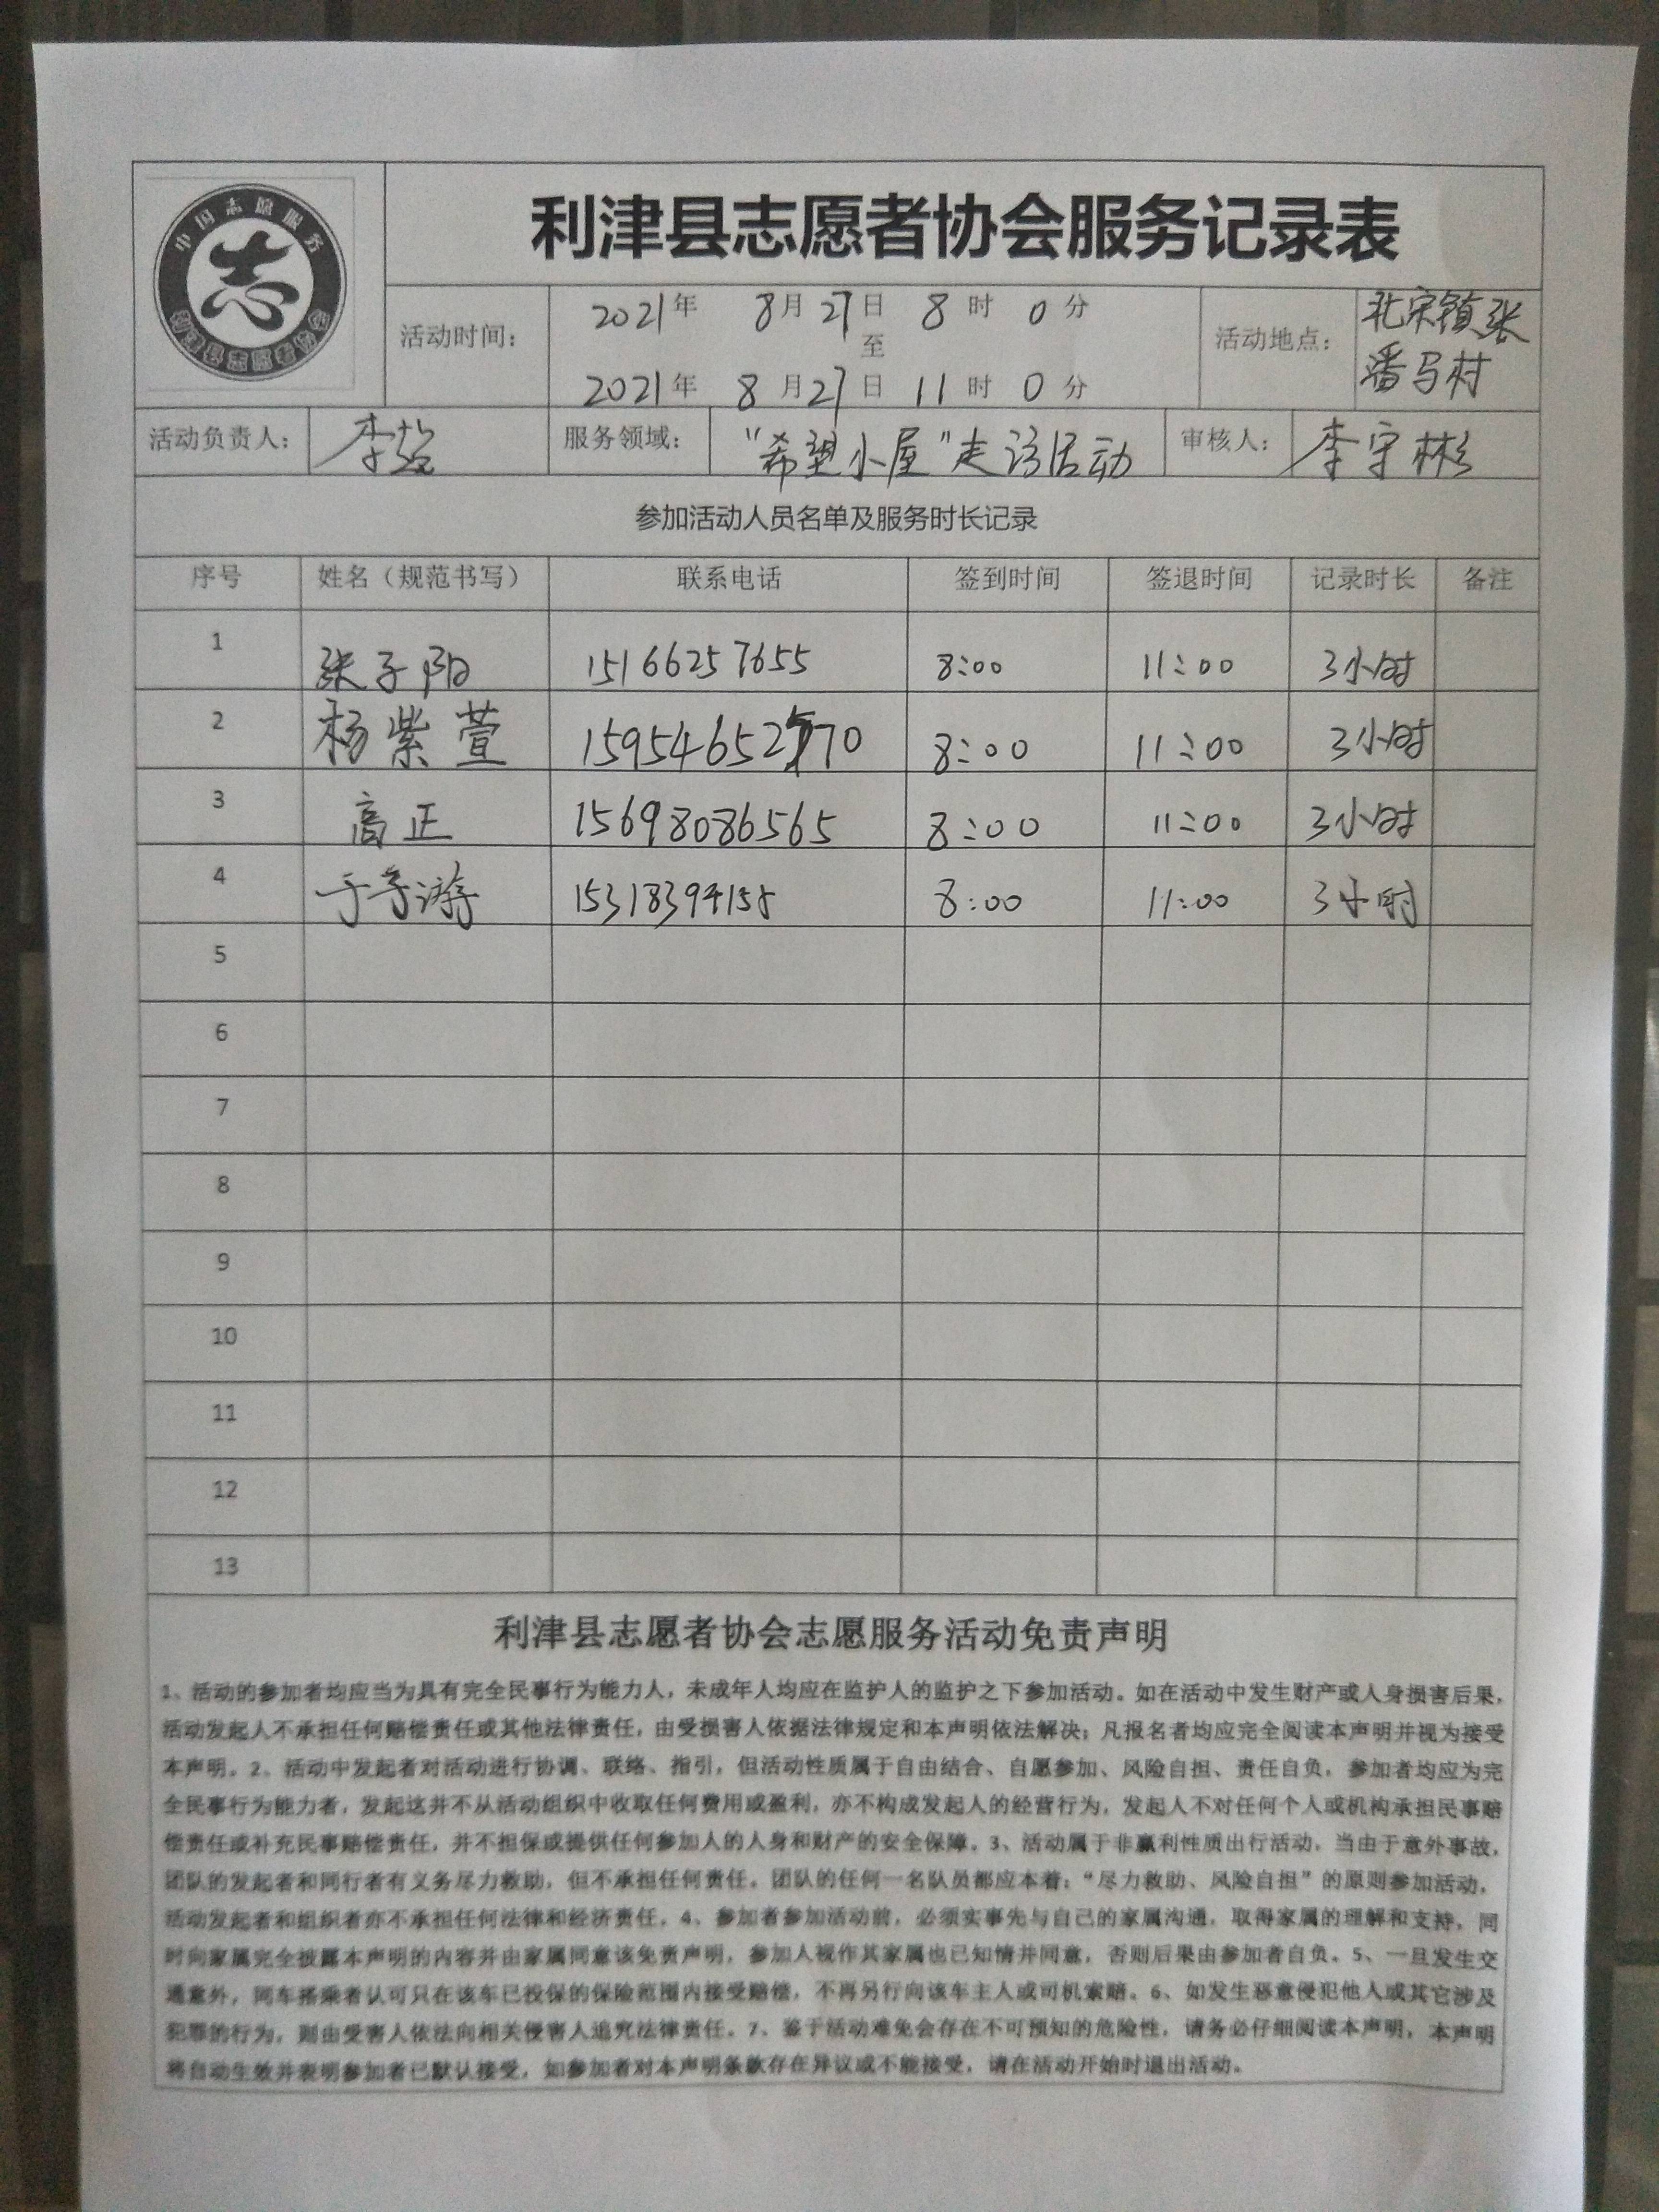 中国志愿服务
志
利津县志愿者协会
利津县志愿者协会服务记录表
活动时间：
2021年 8月27日 8时 0分
至
2021年 8月27日 11时 0分
活动地点：
北宋镇张
潘马村
活动负责人：
服务领域： "希望小屋"走访活动 审核人： 李守彬
参加活动人员名单及服务时长记录
序号 姓名（规范书写） 联系电话 签到时间 签退时间 记录时长 备注
1 张子阳 15166257655 8:00 11:00 3小时
2 杨紫萱 8:00 11:00 3小时
3 高正 15698086565 8:00 11:00 3小时
4 于子游 15318394158 8:00 11:00 3小时
5
6
7
8
9
10
11
12
13
利津县志愿者协会志愿服务活动免责声明
1、活动的参加者均应当为具有完全民事行为能力人，未成年人均应在监护人的监护之下参加活动。如在活动中发生财产或人身损害后果，
活动发起人不承担任何赔偿责任或其他法律责任，由受损害人依据法律规定和本声明依法解决；凡报名者均应完全阅读本声明并视为接受
本声明。2、活动中发起者对活动进行协调、联络、指引，但活动性质属于自由结合、自愿参加、风险自担、责任自负，参加者均应为完
全民事行为能力者，发起这并不从活动组织中收取任何费用或盈利，亦不构成发起人的经营行为，发起人不对任何个人或机构承担民事赔
偿责任或补充民事赔偿责任，并不担保或提供任何参加人的人身和财产的安全保障。3、活动属于非赢利性质出行活动，当由于意外事故，
团队的发起者和同行者有义务尽力救助，但不承担任何责任。团队的任何一名队员都应本着："尽力救助、风险自担"的原则参加活动，
活动发起者和组织者亦不承担任何法律和经济责任。4、参加者参加活动前，必须实事先与自己的家属沟通，取得家属的理解和支持，同
时向家属完全披露本声明的内容并由家属同意该免责声明，参加人视作其家属也已知情并同意，否则后果由参加者自负。5、一旦发生交
通意外，同车搭乘者认可只在该车已投保的保险范围内接受赔偿，不再另行向该车主人或司机索赔。6、如发生恶意侵犯他人或其它涉及
犯罪的行为，则由受害人依法向相关侵害人追究法律责任。7、鉴于活动难免会存在不可预知的危险性，请务必仔细阅读本声明，本声明
将自动生效并表明参加者已默认接受，如参加者对本声明条款存在异议或不能接受，请在活动开始时退出活动。